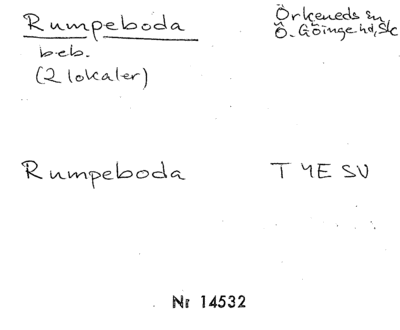 Rumpeboda
Örkeneds sn,
Ö. Göinge hd, Sk
beb.
(2 lokaler)
Rumpeboda T 4E SV
Nr 14532